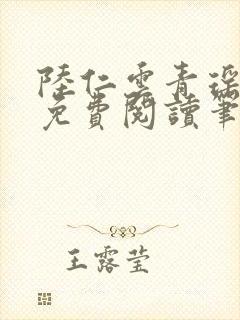 陸仁雲青瑤
免費閱讀筆
王露莹